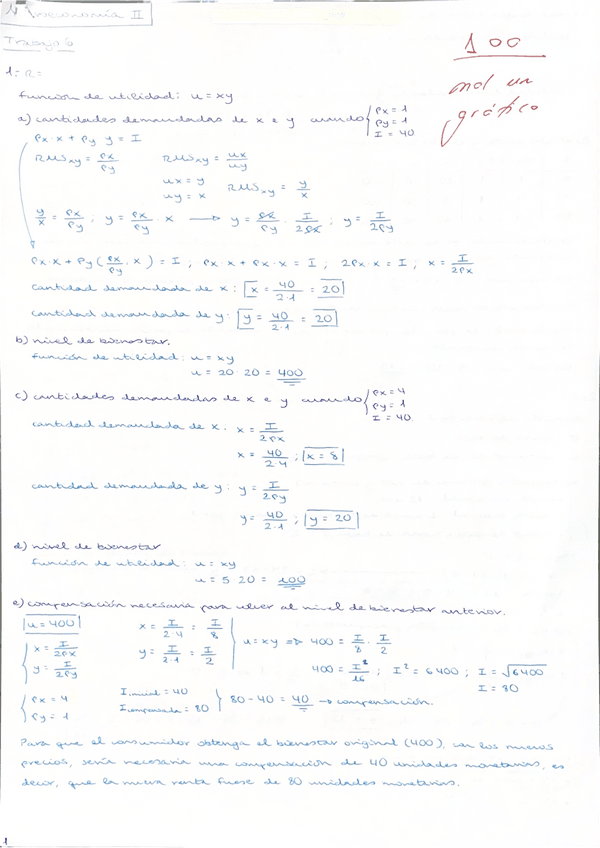 Microeconomía II
Trabajo 6
100
mal un
gráfico
1: R=
función de utilidad: u = xy
a) cantidades demandadas de x e y cuando { Px = 1 Py = 1 I = 40
Px · x + Py y = I
RMSxy = Px/Py RMSxy = ux/uy
ux = y
uy = x RMSxy = y/x
y/x = Px/Py ; y = Px/Py · x → y = Px/Py · I/2Px ; y = I/2Py
Px · x + Py (Px/Py · x) = I ; Px · x + Px · x = I ; 2Px · x = I ; x = I/2Px
cantidad demandada de x: x = 40/2·1 = 20
cantidad demandada de y: y = 40/2·1 = 20
b) nivel de bienestar.
función de utilidad: u = xy
u = 20 · 20 = 400
c) cantidades demandadas de x e y cuando { Px = 4 Py = 1 I = 40
cantidad demandada de x: x = I/2Px
x = 40/2·4 ; x = 5
cantidad demandada de y: y = I/2Py
y = 40/2·1 ; y = 20
d) nivel de bienestar
función de utilidad: u = xy
u = 5 · 20 = 100
e) compensación necesaria para volver al nivel de bienestar anterior.
u = 400
{ x = I/2Px y = I/2Py
x = I/2·4 = I/8
y = I/2·1 = I/2
} u = xy ⇒ 400 = I/8 · I/2
400 = I²/16 ; I² = 6400 ; I = √6400
I = 80
{ Px = 4 Py = 1
I inicial = 40
I compensada = 80
} 80 - 40 = 40 → compensación.
Para que el consumidor obtenga el bienestar original (400), con los nuevos
precios, sería necesaria una compensación de 40 unidades monetarias, es
decir, que la nueva renta fuese de 80 unidades monetarias.
1